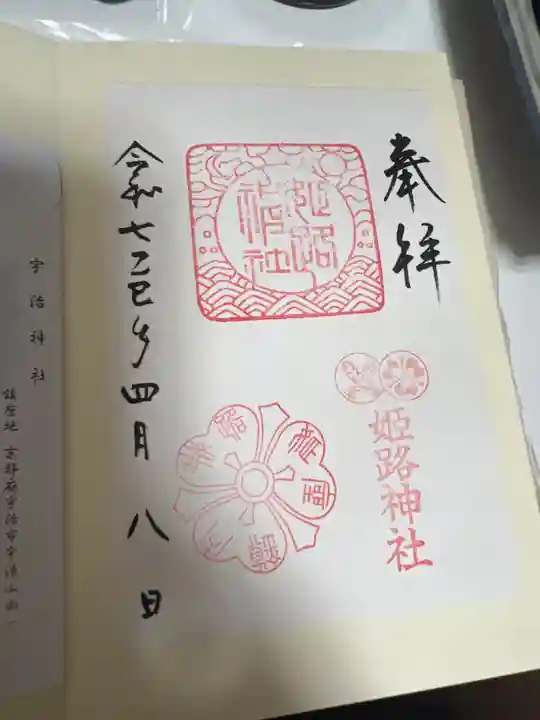 奉拝
姫路神社
姫路神社
令和七乙巳年四月八日
宇治神社
鎮座地 京都府宇治市宇治山田一